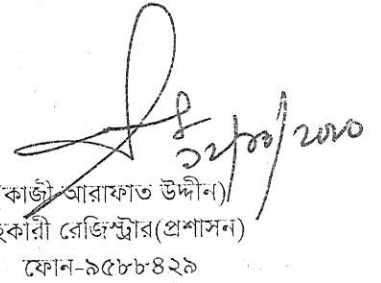 ১২/১০/২০২০
কাজী আরাফাত উদ্দীন)
হকারী রেজিস্ট্রার(প্রশাসন)
ফোন-৯৫৮৮৪২৯